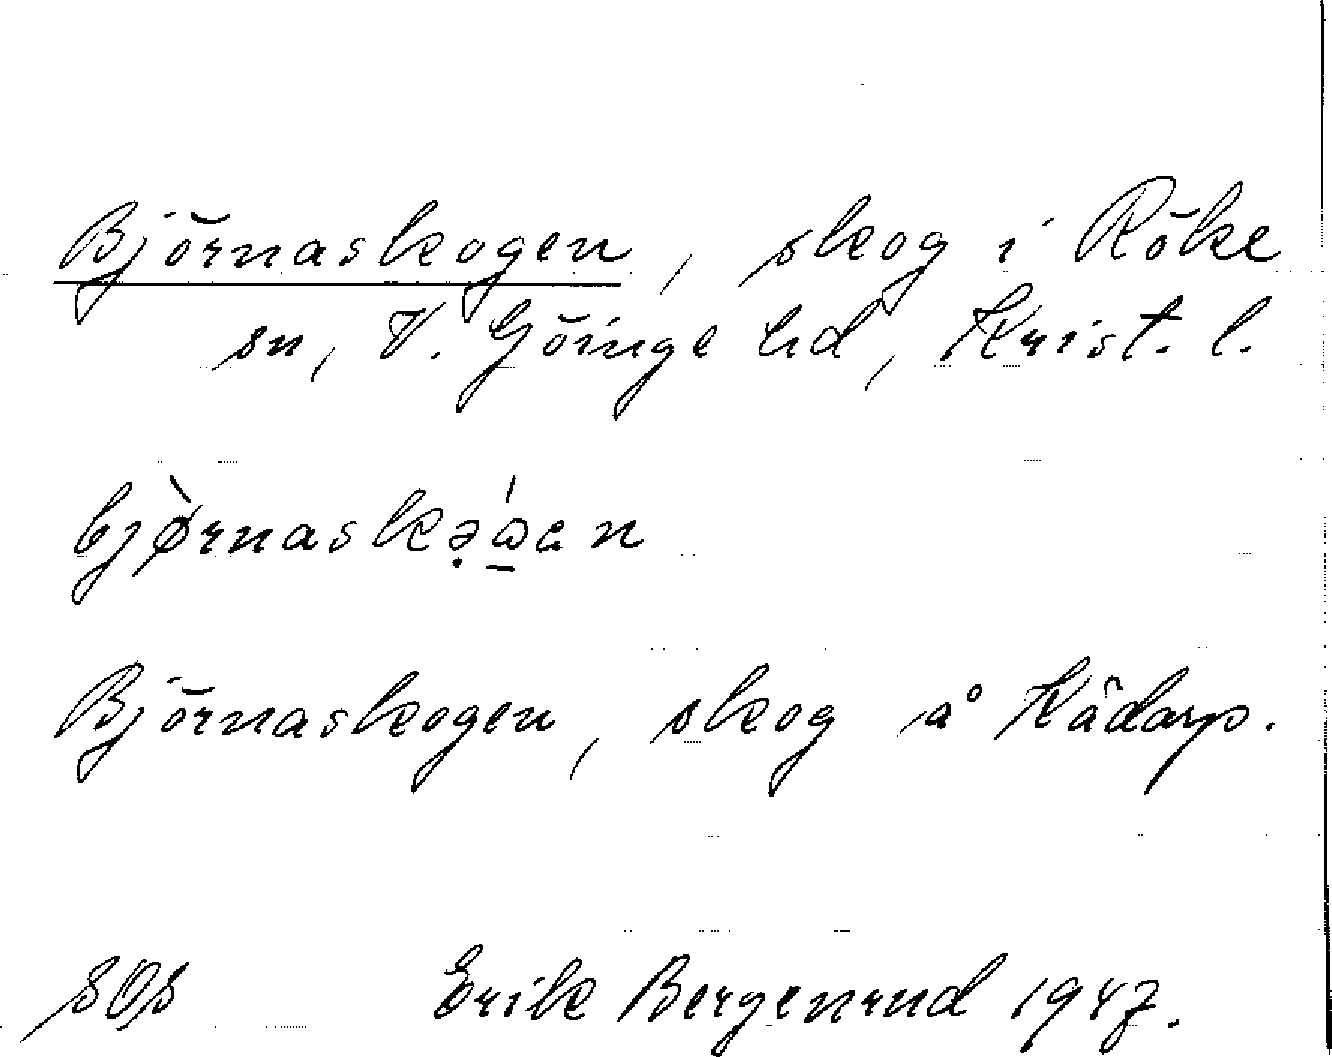 Björnaskogen, skog i Röke
sn, V. Göinge hd, Krist. l.
Björnaskogen, skog å Kådarp.
SOS Erik Bergenrud 1947.